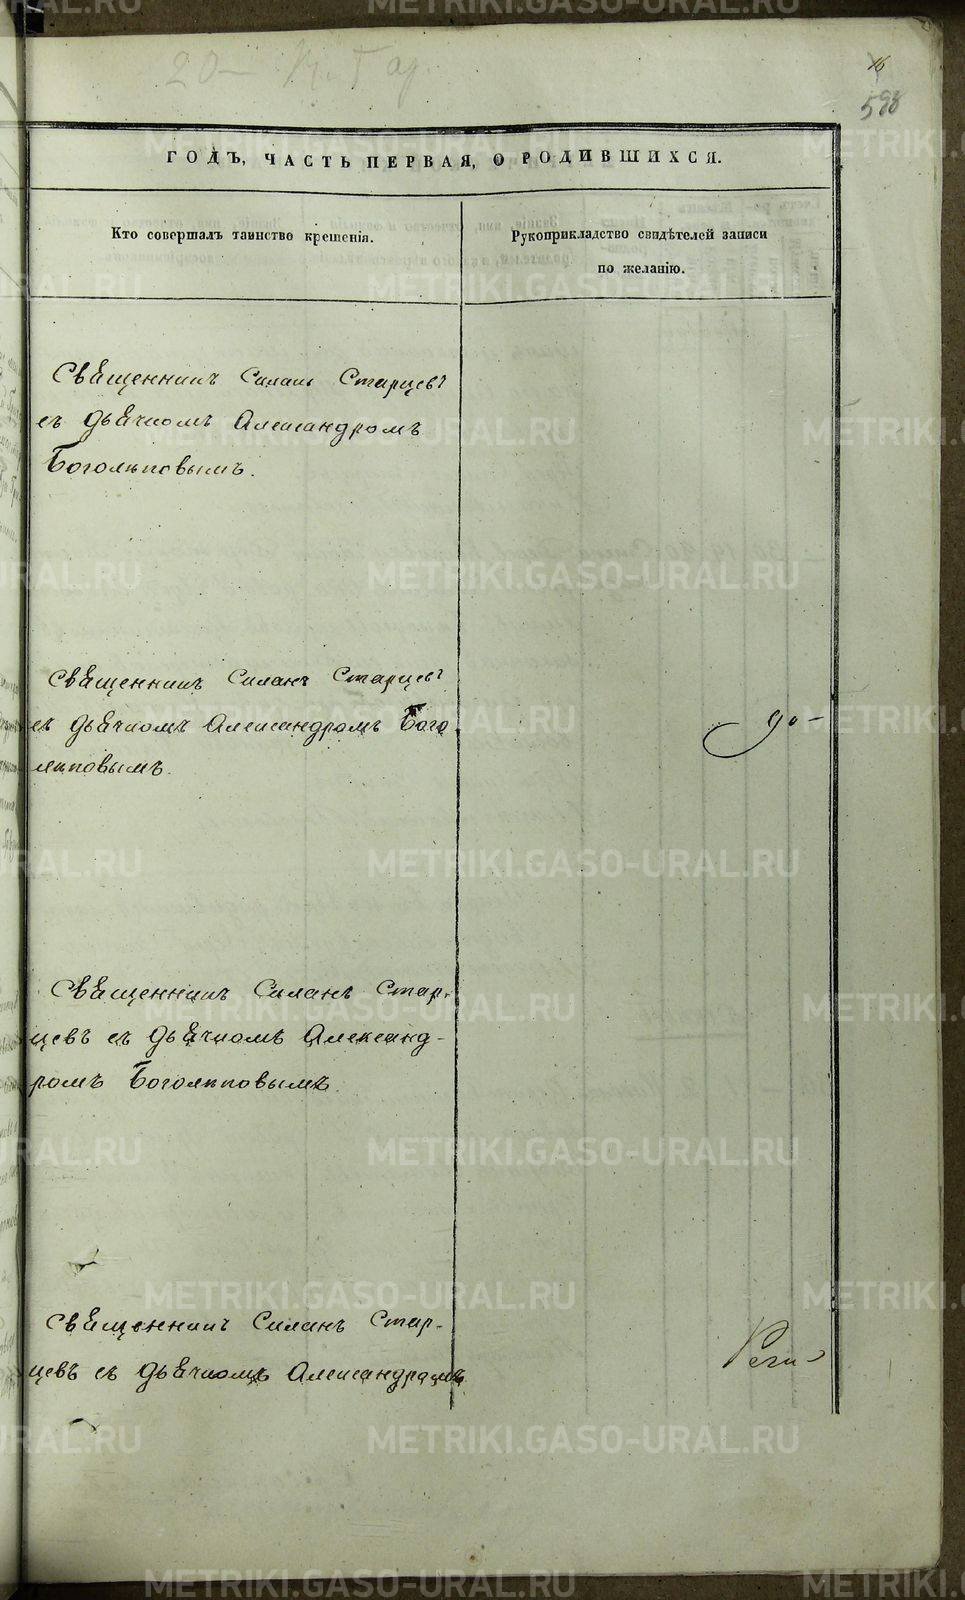 16
593
ГОДЪ, ЧАСТЬ ПЕРВАЯ, О РОДИВШИХСЯ.
Кто совершалъ таинство крещенія.
Рукоприкладство свидѣтелей записи
по желанію.
Священникъ Силанъ Старцевъ
съ дьячкомъ Александромъ
Боголѣповымъ.
Священникъ Силанъ Старцевъ
съ дьячкомъ Александромъ Бого
лѣповымъ.
до-
Священникъ Силанъ Стар-
цевъ съ дьячкомъ Александ-
ромъ Боголѣповымъ.
Священникъ Силанъ Стар-
цевъ съ дьячкомъ Александромъ
METRIKI.GASO-URAL.RU